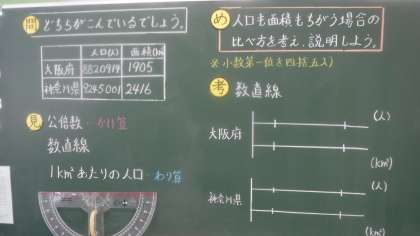 問 どちらがこんでいるでしょう。
人口(人) 面積(km²)
大阪府 8820919 1905
神奈川県 9245001 2416
見 公倍数…かけ算
数直線
1km²あたりの人口…わり算
め 人口も面積もちがう場合の
比べ方を考え、説明しよう。
※小数第一位を四捨五入
考 数直線
(人)
大阪府
(km²)
(人)
神奈川県
(km²)